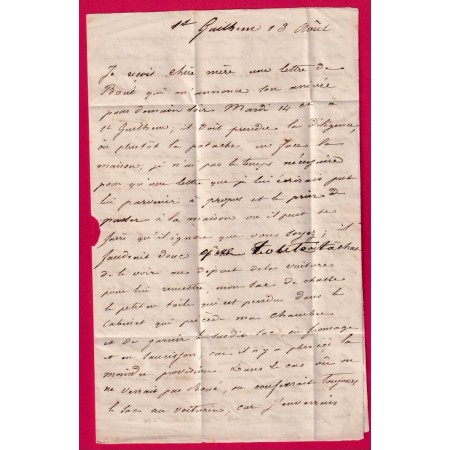 St Guilhem 13 Août
Je reçois chère mère une lettre de
Boué qui m'annonce son arrivée
pour demain soir Mardi 14 ct à
St Guilhem; il doit prendre la diligence,
ou plustôt la patache en face la
maison; je n'ai pas le temps necessaire
pour qu'une lettre que je lui écrirais put
lui parvenir à propos et le prier de
passer à la maison vu il peut se
faire qu'il ignore que vous soyez; il
faudrait donc que tachas
de le voir au départ de la voiture
pour lui remettre, mon sac de chasse
le petit en toile qui est pendu dans le
cabinet qui précède ma chambre
et de garnir le susdit sac en fromage
et en saucisson car il n'y a plus ici la
moindre provision. Dans le cas où on
ne verrait pas Boué, on confierait toujours
le sac au voiturin, car j'enverrais